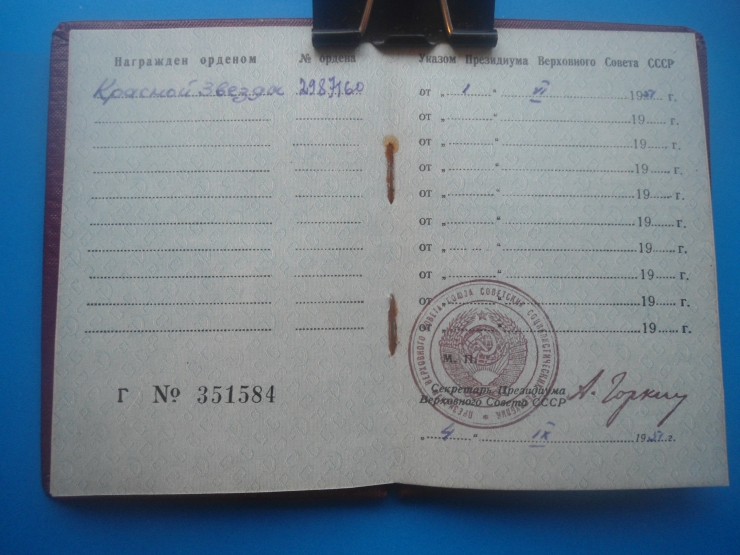 Награжден орденом
№ ордена
Красной Звезды 2987160
Г № 351584
Указом Президиума Верховного Совета СССР
от „ 1 “ VI 19 г.
от „ “ 19 г.
от „ “ 19 г.
от „ “ 19 г.
от „ “ 19 г.
от „ “ 19 г.
от „ “ 19 г.
от „ “ 19 г.
от „ “ 19 г.
от „ “ 19 г.
М. П.
Секретарь Президиума
Верховного Совета СССР
А. Горкин
„ 4 “ IX 19 г.